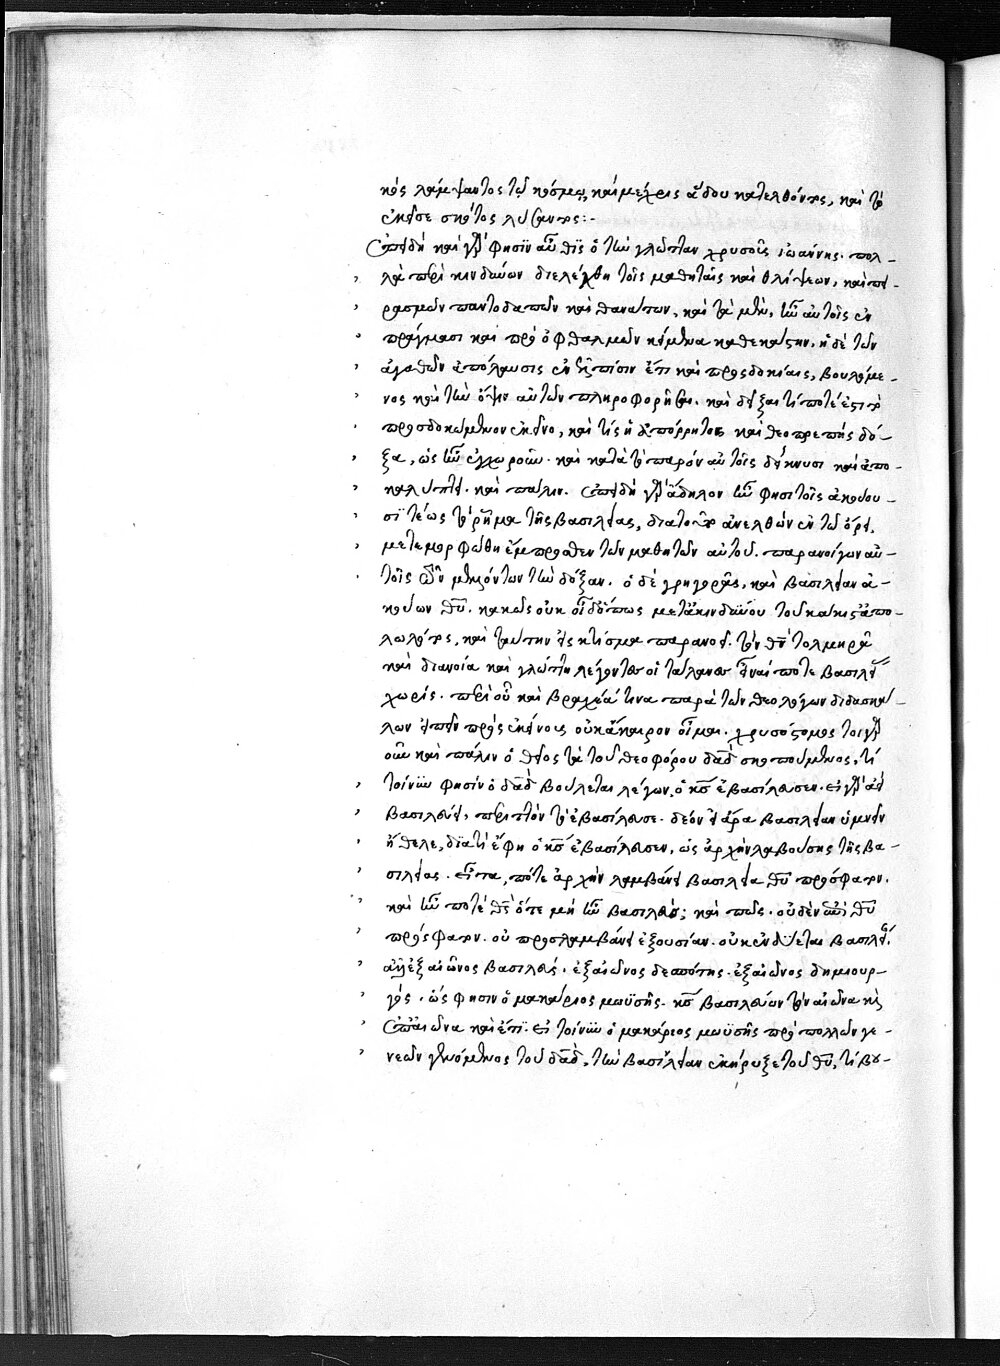 κὸς λάμψαντος τῷ κόσμῳ, καὶ μέχρις ἅδου κατελθόντος, καὶ τὸ
ἐκεῖσε σκότος λύσαντος:-
Ἐπειδὴ καὶ γὰρ φησὶν αὖθις ὁ τὴν γλῶτταν χρυσοῦς ἰωάννης. πολ-
λὰ περὶ κινδύνων διελέχθη τοῖς μαθηταῖς καὶ θλίψεων, καὶ πει-
ρασμῶν παντοδαπῶν καὶ θανάτων, καὶ τὰ μὲν, ἦν αὐτοῖς ἐν
πράγμασι καὶ πρὸ ὀφθαλμῶν κείμενα καθεκάστην. ἡ δὲ τῶν
ἀγαθῶν ἀπόλαυσις ἐν ἐλπίσιν ἔτι καὶ προσδοκίαις, βουλόμε-
νος καὶ τὴν ὄψιν αὐτῶν πληροφορῆσαι. καὶ δεῖξαι τί ποτέ ἐστι τὸ
προσδοκώμενον ἐκεῖνο, καὶ τίς ἡ ἀπόρρητος καὶ θεοπρεπὴς δό-
ξα, ὡς ἦν ἐγχωροῦν. καὶ κατὰ τὸ παρὸν αὐτοῖς δείκνυσι καὶ ἀπο-
καλύπτει. καὶ πάλιν. ἐπειδὴ γὰρ ἄδηλον ἦν φησι τοῖς ἀκούου-
σι τέως τὸ ῥῆμα τῆς βασιλείας, διατοῦτο ἀνελθὼν ἐν τῶ ὄρει,
μετεμορφώθη ἔμπροσθεν τῶν μαθητῶν αὐτοῦ. παρανοίγων αὐ-
τοῖς τῶν μελλόντων τὴν δόξαν. ὁ δὲ γρηγορᾶς, καὶ βασιλείαν ἀ-
κούων θῦ. κακῶς οὐκ οἶδ' ὅπως μετὰ κινδύνου τοῦ κάκιστα ἀπο-
λωλότος, καὶ ταύτην εἰς κτίσμα παρανοεῖ. τὸν θν τολμηρᾶ
καὶ διανοία καὶ γλώττη λέγοντος οἱ τάλαντος εἶναί ποτε βασιλεί
χωρίς. περὶ οὗ καὶ βραχέα τινα παρὰ τῶν θεολόγων διδασκά
λων εἰπεῖν πρὸς ἐκείνους οὐκ ἄκαιρον οἶμαι. χρυσόστομος τοιγαρ
οῦν καὶ πάλιν ὁ θεῖος τὰ τοῦ θεοφόρου δαδ σκοπούμενος, τί
τοίνυν φησὶν ὁ δαδ βούλεται λέγων, ὁ κς ἐβασίλευσεν. εἰ γὰρ ἀεὶ
βασιλεύει, περιττὸν τὸ ἐβασίλευσε. δέον εἰ ἄρα βασιλείαν ὑμνεῖν
ἤθελε, διατί ἔφη ὁ κς ἐβασίλευσεν, ὡς ἀρχὴν λαβούσης τῆς βα-
σιλείας. εἶτα, πότε ἀρχὴν λαμβάνει βασιλεία θῦ πρόσφατον.
καὶ ἦν ποτὲ θς ὅτε μὴ ἦν βασιλεύς; καὶ πῶς. οὐδὲν ἐπὶ θῦ
πρόσφατον. οὐ προσλαμβάνει ἐξουσίαν. οὐκ ἐνδύεται βασιλεί.
ἀεὶ ἐξαιῶνος βασιλεύς. ἐξαιῶνος δεσπότης. ἐξαιῶνος δημιουρ-
γός. ὥς φησιν ὁ μακάριος μωϋσῆς. κς βασιλεύων τὸν αἰῶνα καὶ
ἐπ' αἰῶνα καὶ ἔτι. εἰ τοίνυν ὁ μακάριος μωϋσῆς πρὸ πολλῶν γε-
νεῶν γενόμενος τοῦ δαδ, τὴν βασιλείαν ἐκήρυξε τοῦ θῦ, τί βού-